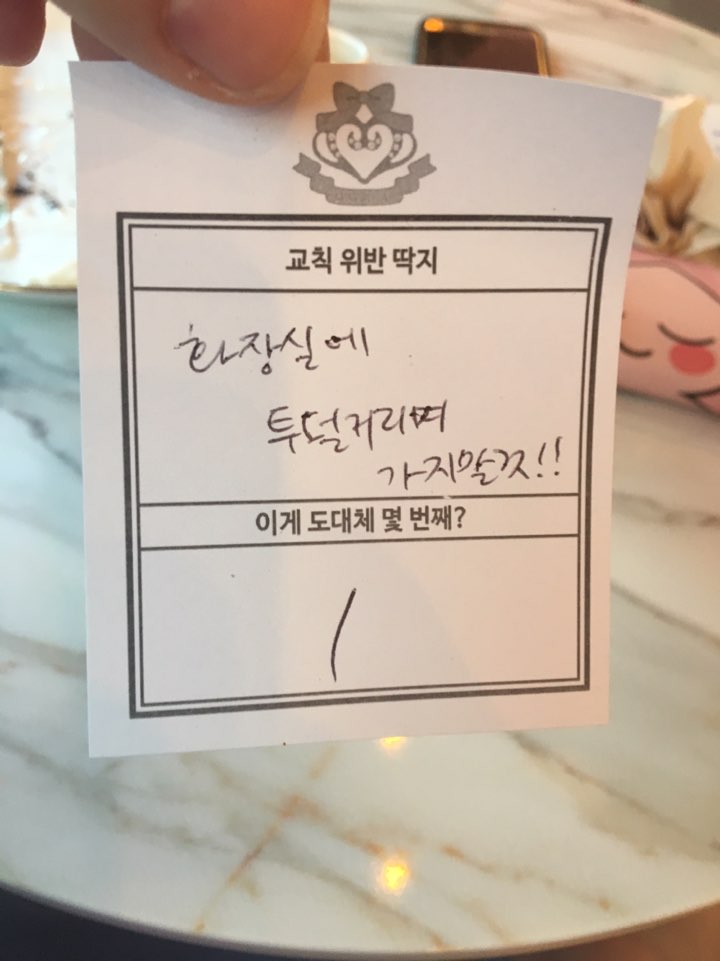 교칙 위반 딱지
화장실에
투덜거리며
가지말것!!
이게 도대체 몇 번째?
1